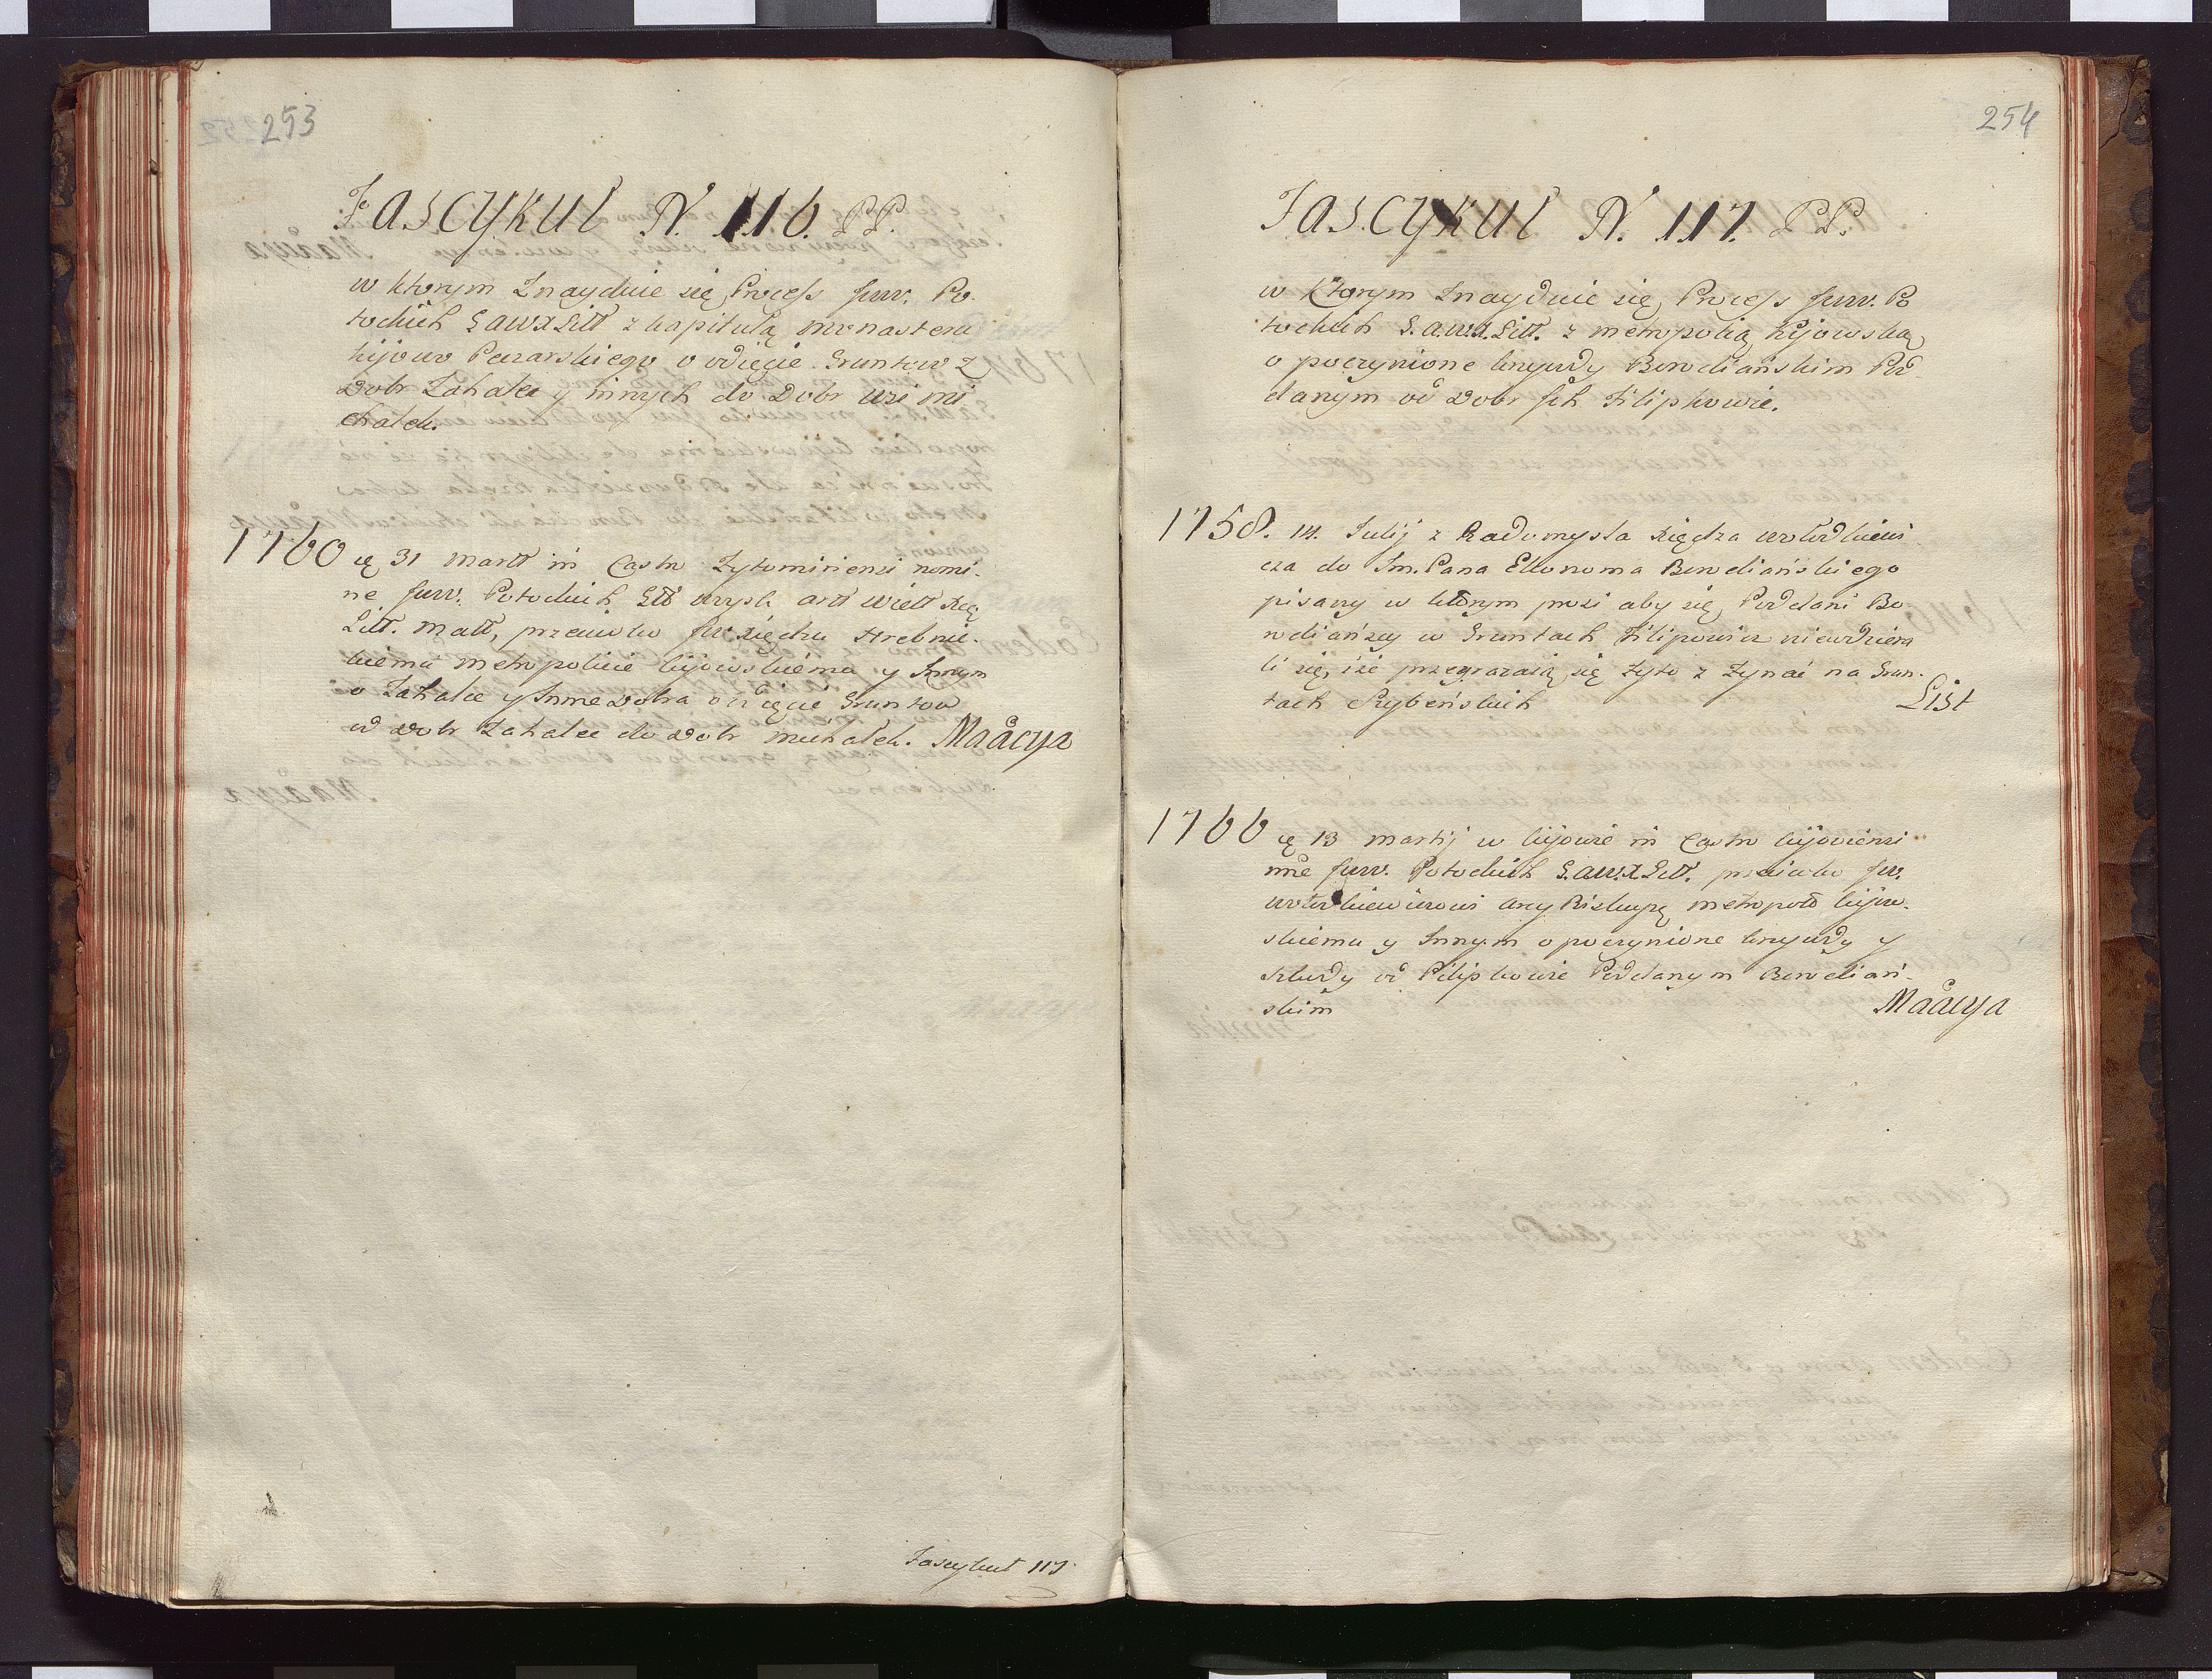 253
Fascykuł N. 116. PP.
w ktorym Znayduie się Process Jww. Po-
tockich S A W X Litt z kapitułą monasteru
kijowo Peczarskiego o odięcie Gruntow z
Dobr Zahalec y innych do Dobr wsi Mi
chalek.
1760 ę 31 Martt in Castro Zytomiriensi nomi-
ne Jww. Potockich
Litt. Matt, przeciwko Jw Xiędzu Hrebnic-
kiemu metropolicie kijowskiemu y Innym
o Zahalce y Inne Dobra o odięcie Gruntow
od Dobr Zahalec do Dobr Michalek. Maacya
Fascykuł 117
254
Fascykuł N. 117. PP.
w ktorym Znayduie się Process Jww. Po
tockich S. A. W. X. Litt. z metropolią Kijowską
o poczynione krzywdy Borodiańskim Pod
danym od Dobr Ich Filipkowie.
1758. 14. Julij z Radomysla Xiędza Wołodkiewi
cza do Jm. Pana Ekonoma Borodiańskiego
pisany w którym prosi aby się Poddani Bo
rodiańscy w Gruntach Filipowicz niewdziera
li się, iże przegrażaią się zyto z zynać na Grun-
tach Rybeńskich List
1766 ę 13 Martij w kijowie in Castro kijoviensi
nne Jww. Potockich S. A. W. X Litt. przeciwko Jw.
Wołodkiewiczowi Arcy Biskupę metropoł kijow-
skiemu y Innym o poczynione krzywdy y
szkody od Filipkowie Poddanym Borodiań-
skim Maacya